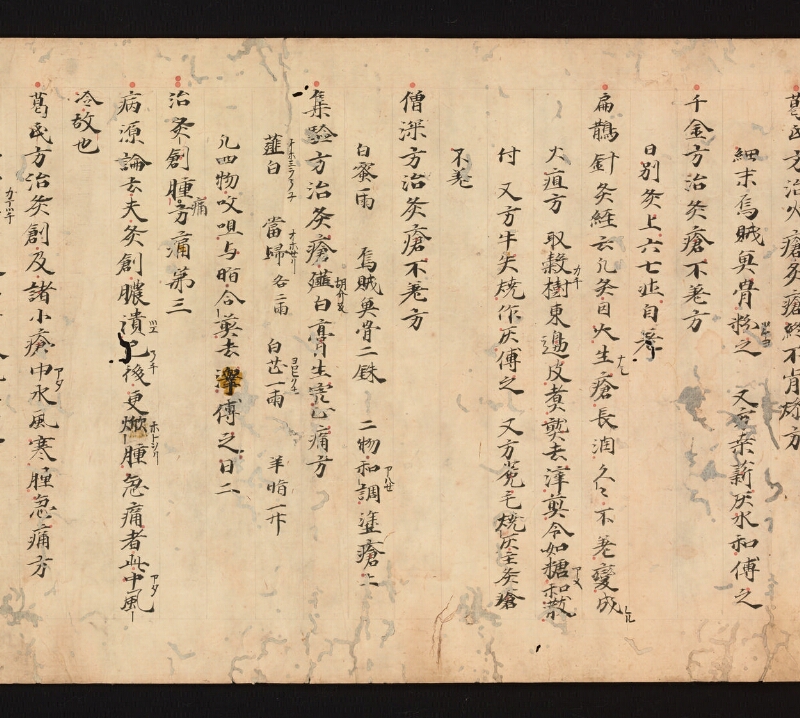 葛氏方治火瘡灸瘡終不肯燥方
細末烏賊魚骨粉之 又方桒薪灰水和傅之
千金方治灸瘡不差方
日別灸上六七壮自差
扁鵲針灸経云凡灸因火生瘡長潤久々不差變成
火疽方 取穀樹東邊皮煮熟去滓煎令如糖和散
付 又方牛失焼作灰傅之 又方兔毛焼灰主灸瘡
不差
僧深方治灸瘡不差方
白蜜一兩 烏賊魚骨二銖 二物和調塗瘡上
集驗方治灸瘡薤白膏生完止痛方
薤白 當歸各二兩 白芷一兩 羊脂一升
凡四物㕮咀与脂合煎去滓傅之日二
治灸創腫痛方第三
病源論云夫灸創膿潰已後更焮腫急痛者此中風
冷故也
葛氏方治灸創及諸小瘡中水風寒腫急痛方